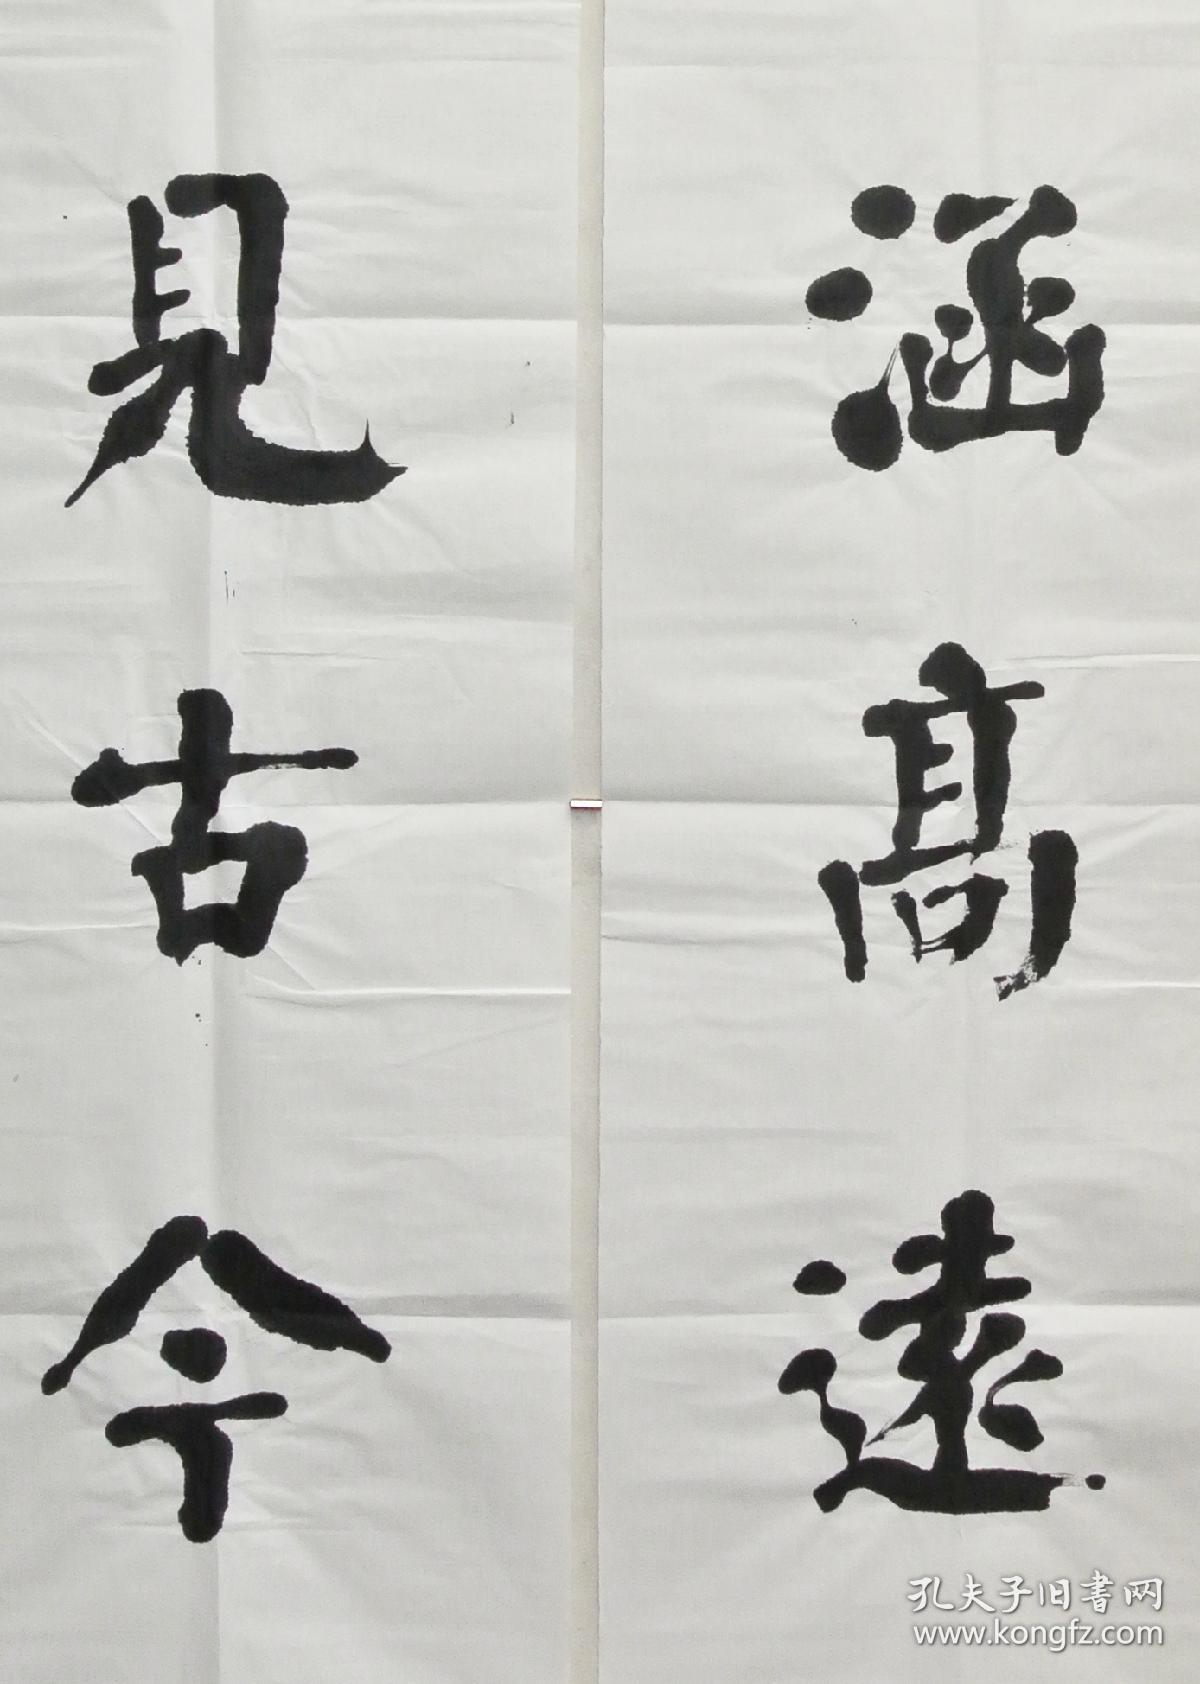 涵髙遠
見古今
孔夫子旧書网
www.kongfz.com